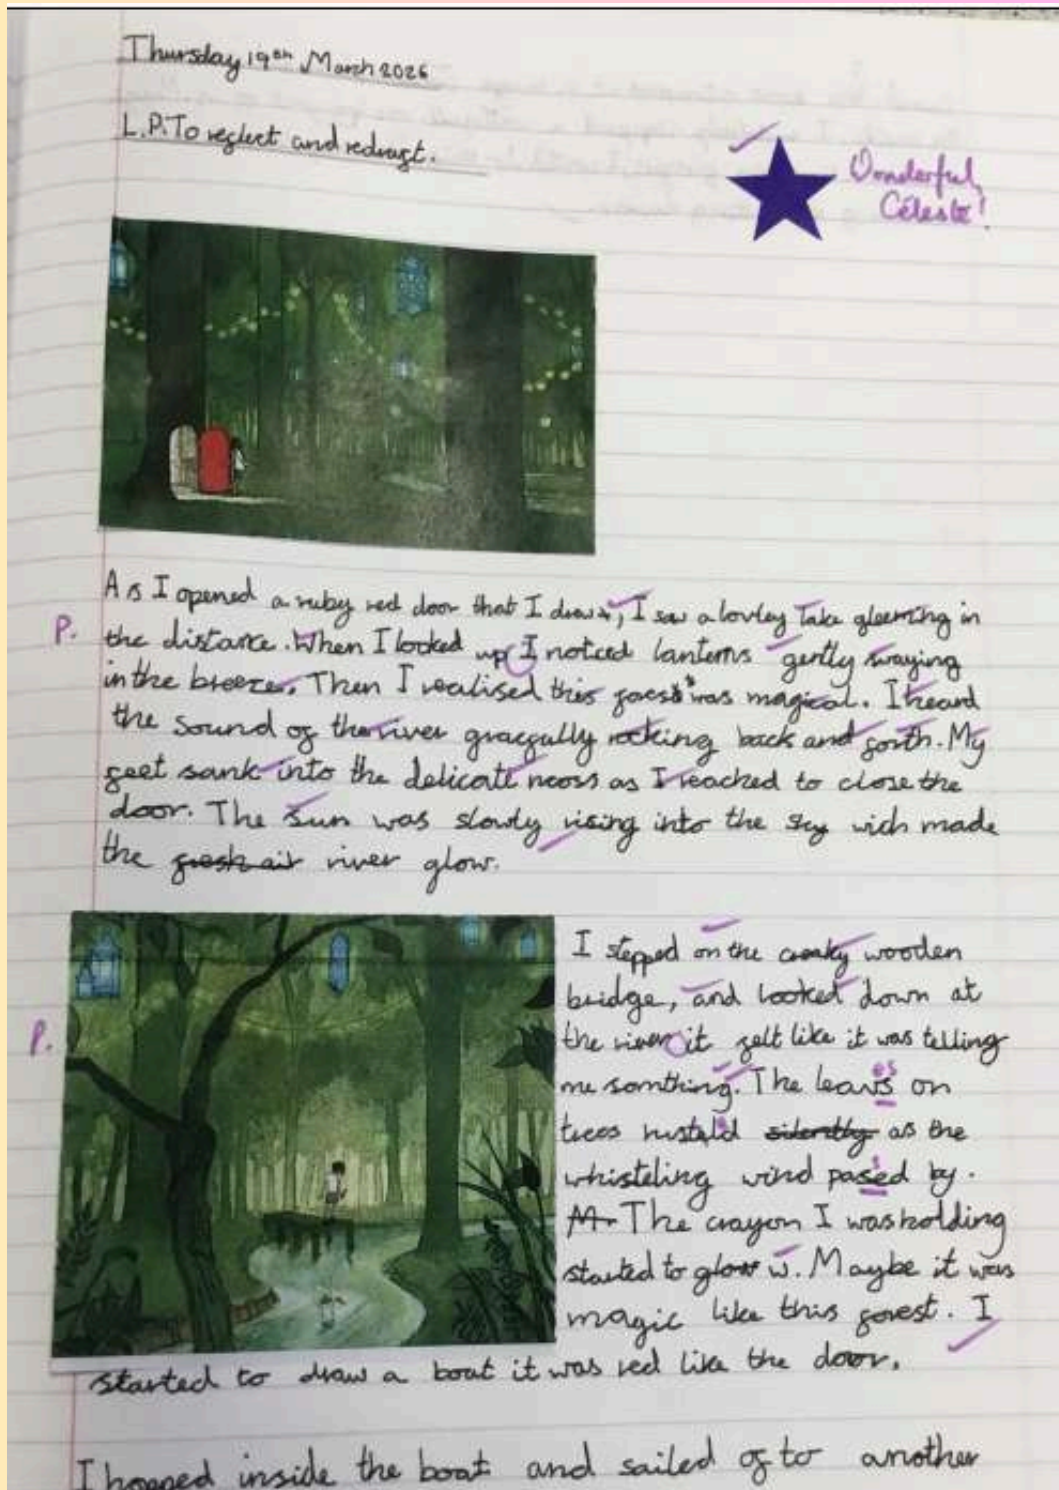 Thursday 19th March 2026
L.P. To reflect and redraft.
Wonderful,
Céleste!
As I opened a ruby red door that I draw, I saw a lovley lake gleeming in
P. the distance. When I looked up I noticed lanterns gently swaying
in the breeze. Then I realised this forest was magical. I heard
the sound of the river gracefully rocking back and forth. My
feet sank into the delicate moss as I reached to close the
door. The sun was slowly rising into the sky wich made
the fresh air river glow.
I stepped on the creaky wooden
bridge, and looked down at
P. the river it felt like it was telling
me somthing. The leavs on
es
trees rusteld silently as the
whisteling wind pased by.
s
M. The crayon I was holding
started to glow w. Maybe it was
magic like this forest. I
started to draw a boat it was red like the door.
I hopped inside the boat and sailed of to another